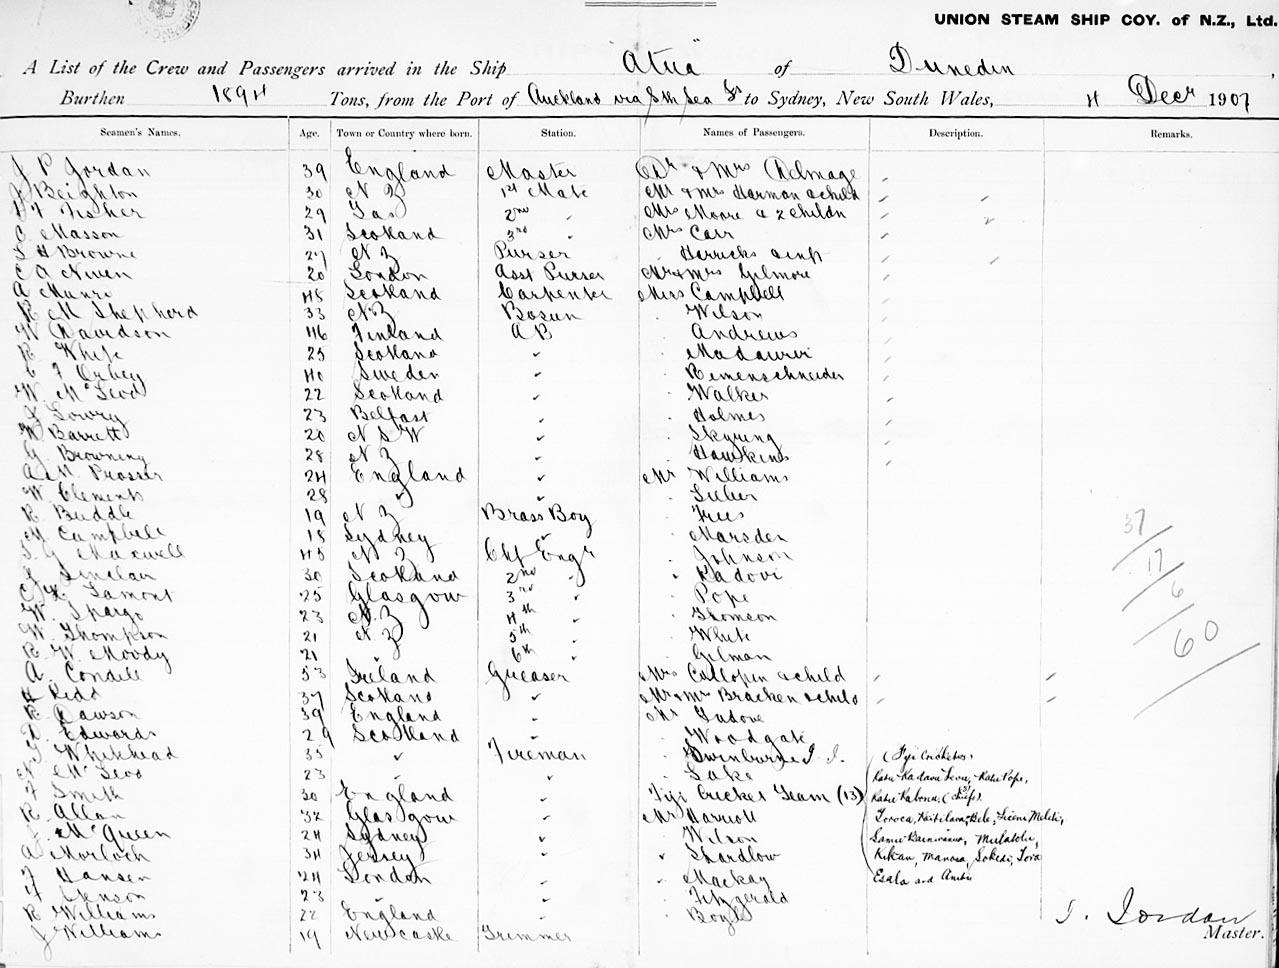 UNION STEAM SHIP COY. of N.Z., Ltd.
A List of the Crew and Passengers arrived in the Ship "Atua" of Dunedin,
Burthen 1894 Tons, from the Port of Auckland via Sth Sea Is to Sydney, New South Wales, 4 Decr 1907
Seamen's Names. Age. Town or Country where born. Station. Names of Passengers. Description. Remarks.
J P Jordan 39 England Master Dr & Mrs Delmage
J Beighton 30 N Z 1st Mate Mr & Mrs Harman & child
Fisher 29 Tas 2nd " Mrs Moore & 2 childn
C Masson 31 Scotland 3rd " Mrs Carr
S H Browne 27 N Z Purser
C A Niven 20 London Asst Purser Mr & Mrs Gilmore
A Munro 45 Scotland Carpenter Miss Campbell
R M Shepherd 33 N.Z Bosun " Wilson
W Davidson 46 Finland A B " Andrews
R White 25 Scotland "
C F Orbey 40 Sweden " " Riemenschneider
W. McLeod 22 Scotland " " Walker
J Lowry 23 Belfast " " Holmes
W Barrett 20 N S W " " Skyring
G. Browning 28 N Z " " Hawkins
Prosser 24 England " Mr Williams
W. Clements 28 " "
R. Buddle 19 N Z Brass Boy
M Campbell 18 Sydney " " Marsden
S. G Maxwell 45 N Z Chf Engr " Johnson
J Sinclair 30 Scotland 2nd " " Kadovi
Lamont 25 Glasgow 3rd " " Pope
W. Spargo 23 N.Z 4th " Thomson
W. Thompson 21 N Z 5th " White
R. W. Moody 21 " 6th " " Gilman
A. Condell 53 Ireland Greaser Mrs Cullopin & child
H Kidd 37 Scotland " Mr & Mrs Bracken & child
R. Dawson 39 England " Mr Tudove
D. Edwards 29 Scotland " " Woodgate
T Whitehead 35 " Fireman " Swinburne (Fiji Cricketers
N McLeod 23 " " " Lake Ratu Kadavu Levu, Ratu Pope,
F Smith 30 England " Fiji Cricket Team (13) Ratu Kabona, (chiefs).
R. Allan 32 Glasgow " Mr Harriott
J. McQueen 24 Sydney " " Wilson
A Morloch 34 Jersey " " Shardlow
F Hansen 24 London " " Mackay Esala and
F Jenson 23 " " " Fitzgerald
R Williams 22 England " " Boyle
J Williams 19 Newcastle Trimmer
37
17
6
60
J. Jordan
Master.